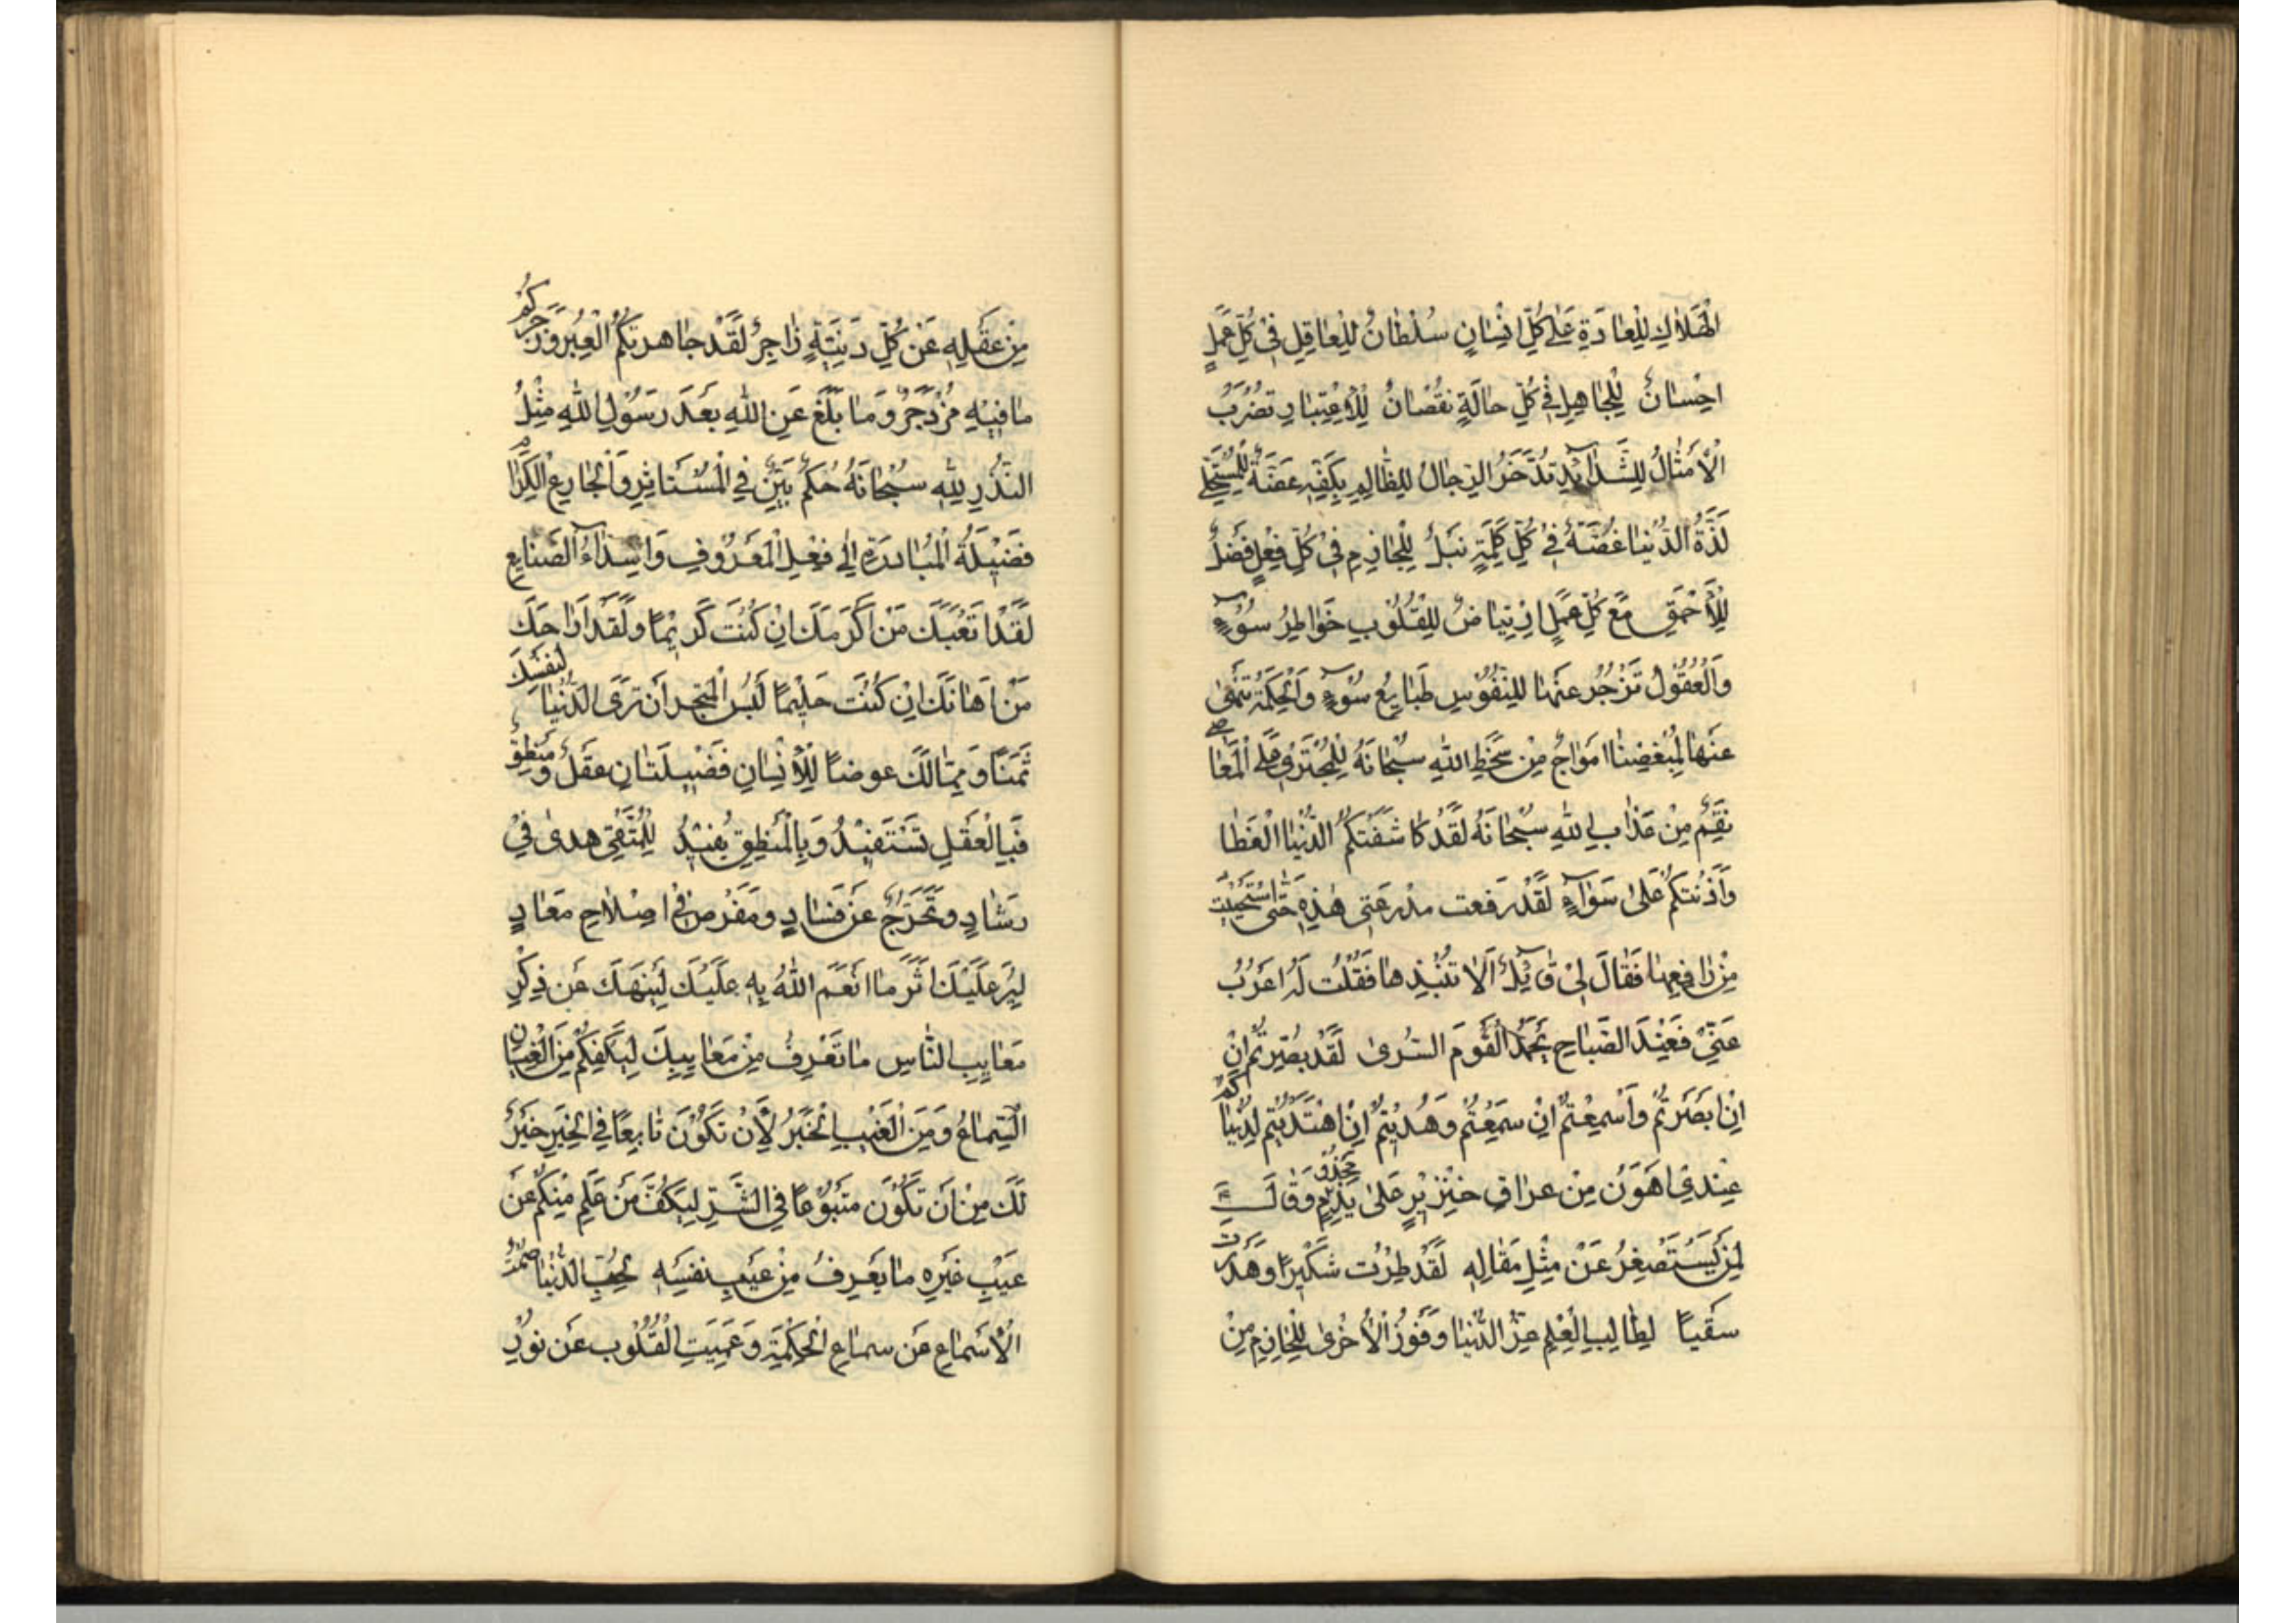 الْهَلَاكِ لِلْعَادَةِ عَلٰى كُلِّ اِنْسَانٍ سُلْطَانٌ لِلْعَاقِلِ فِيْ كُلِّ عَمَلٍ
اِحْسَانٌ لِلْجَاهِلِ فِيْ كُلِّ حَالَةٍ نُقْصَانٌ لِلْاِعْتِبَارِ تُضْرَبُ
الْاَمْثَالُ لِلشَّدَآئِدِ تُدَّخَرُ الرِّجَالُ لِلظَّالِمِ بِكَفِّهِ عَضَّةٌ لِلْمُسْتَحْلِي
لَذَّةَ الدُّنْيَا غُصَّةٌ فِيْ كُلِّ كَلِمَةٍ نَبْلٌ لِلْحَازِمِ فِيْ كُلِّ فِعْلٍ فَضْلٌ
لِلْاَحْمَقِ مَعَ كُلِّ عَمَلٍ اِرْتِيَاضٌ لِلْقُلُوْبِ خَوَاطِرُ سُوْءٍ
وَالْعُقُوْلُ تَزْجُرُ عَنْهَا لِلنُّفُوْسِ طَبَايِعُ سُوْءٍ وَالْحِكْمَةُ تَنْهٰى
عَنْهَا لِمُبْغِضِنَا اَمْوَاجٌ مِنْ سَخَطِ اللهِ سُبْحَانَهُ لِلْمُجْتَرِيْ عَلَى الْمَعَاصِيْ
نِقَمٌ مِنْ عَذَابِ اللهِ سُبْحَانَهُ لَقَدْ كَاشَفَتْكُمُ الدُّنْيَا الْغِطَا
وَاٰذَنَتْكُمْ عَلٰى سَوَآءٍ لَقَدْ رَقَعْتُ مِدْرَعَتِيْ هٰذِهِ حَتَّى اسْتَحْيَيْتُ
مِنْ رَاقِعِهَا فَقَالَ لِيْ قَآئِلٌ اَلَا تَنْبِذُهَا فَقُلْتُ لَهُ اعْزُبْ
عَنِّيْ فَعِنْدَ الصَّبَاحِ يَحْمَدُ الْقَوْمُ السُّرٰى لَقَدْ بُصِّرْتُمْ اِنْ
اِنْ اَبْصَرْتُمْ وَاُسْمِعْتُمْ اِنْ سَمِعْتُمْ وَهُدِيْتُمْ اِنِ اهْتَدَيْتُمْ لَدُنْيَاكُمْ
عِنْدِيْ اَهْوَنُ مِنْ عِرَاقِ خِنْزِيْرٍ عَلٰى يَدِ مَجْذُوْمٍ وَقَالَ
لِمَنْ يَسْتَصْغِرُ عَنْ مِثْلِ مَقَالِهِ لَقَدْ طِرْتَ شَكِيْرًا وَهَدَرْتَ
سَقْبًا لِطَالِبِ الْعِلْمِ عِزُّ الدُّنْيَا وَفَوْزُ الْاُخْرٰى لِلْحَازِمِ مِنْ
مِنْ عَقْلِهِ عَنْ كُلِّ دَنِيَّةٍ زَاجِرٌ لَقَدْ جَاهَرَتْكُمُ الْعِبَرُ وَزَجَرَكُمْ
مَا فِيْهِ مُزْدَجَرٌ وَمَا بَلَّغَ عَنِ اللهِ بَعْدَ رَسُوْلِ اللهِ مِثْلُ
النُّذُرِ لِلّٰهِ سُبْحَانَهُ حُكْمٌ بَيِّنٌ فِي الْمُسْتَاثِرِ وَالْجَازِعِ لِلْكِرَامِ
فَضِيْلَةُ الْمُبَادَرَةِ اِلٰى فِعْلِ الْمَعْرُوْفِ وَاِسْدَآءِ الصَّنَايِعِ
لَقَدْ اَتْعَبَكَ مَنْ اَكْرَمَكَ اِنْ كُنْتَ كَرِيْمًا وَلَقَدْ اَرَاحَكَ
مَنْ اَهَانَكَ اِنْ كُنْتَ حَلِيْمًا لَبِئْسَ الْمَتْجَرُ اَنْ تَرَى الدُّنْيَا لِنَفْسِكَ
ثَمَنًا وَمِمَّا لَكَ عِوَضًا لِلْاِنْسَانِ فَضِيْلَتَانِ عَقْلٌ وَمَنْطِقٌ
فَبِالْعَقْلِ تَسْتَفِيْدُ وَبِالْمَنْطِقِ يُفِيْدُ لِلْمُتَّقِيْ هُدًى فِيْ
رَشَادٍ وَتَحَرُّجٌ عَنْ فَسَادٍ وَحِرْصٌ فِيْ اِصْلَاحِ مَعَادٍ
لِيُرَ عَلَيْكَ اَثَرُ مَا اَنْعَمَ اللهُ بِهِ عَلَيْكَ لِيَنْهَكَ عَنْ ذِكْرِ
مَعَايِبِ النَّاسِ مَا تَعْرِفُ مِنْ مَعَايِبِكَ لِيَكْفِكُمْ مِنَ الْعِيَانِ
السَّمَاعُ وَمِنَ الْغَيْبِ الْخَبَرُ لَاَنْ تَكُوْنَ تَابِعًا فِي الْخَيْرِ خَيْرٌ
لَكَ مِنْ اَنْ تَكُوْنَ مَتْبُوْعًا فِي الشَّرِّ لِيَكُفَّ مَنْ عَلِمَ مِنْكُمْ عَنْ
عَيْبِ غَيْرِهِ مَا يَعْرِفُ مِنْ عَيْبِ نَفْسِهِ لِحُبِّ الدُّنْيَا صَمَّتِ
الْاَسْمَاعُ عَنْ سَمَاعِ الْحِكْمَةِ وَعَمِيَتِ الْقُلُوْبُ عَنْ نُوْرِ